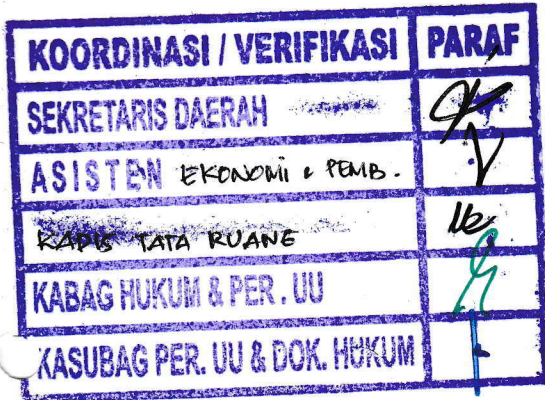 KOORDINASI / VERIFIKASI PARAF
SEKRETARIS DAERAH
ASISTEN EKONOMI & PEMB.
KADIS TATA RUANG
KABAG HUKUM & PER. UU
KASUBAG PER. UU & DOK. HUKUM